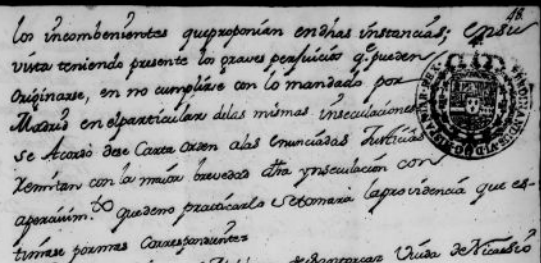 48.
los incombenientes que proponian en dhas instancias; en su
vista teniendo presente los graves perjuicios q.e pueden
originarse, en no cumplirse con lo mandado por
Madrid en el particular de las mismas inseculaciones
se Acordó dese Carta orden a las enunciadas Justicias
Remitan con la maior brevedad dha ynseculación con
apercivim.to que de no practicarlo se tomará la providencia que es-
timase por mas Correspondiente
Viuda de Nicassio